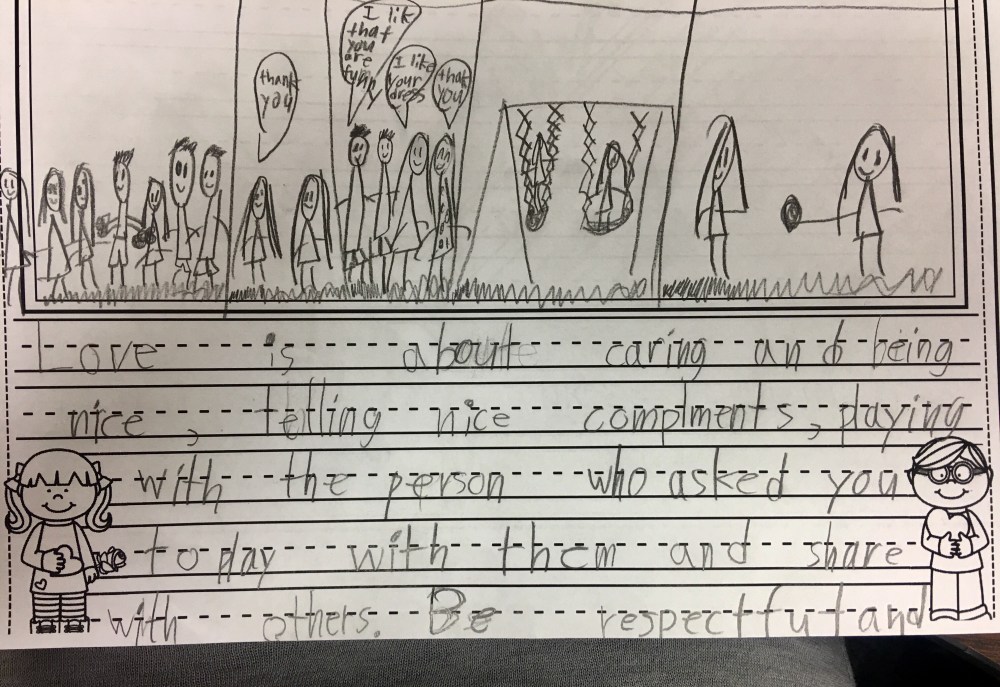 thank
you
I like
that
you
are
funny
I like
your
dress
thak
you
Love is about caring and being
nice, telling nice complments, playing
with the person who asked you
to play with them and share
with others. Be respectful and